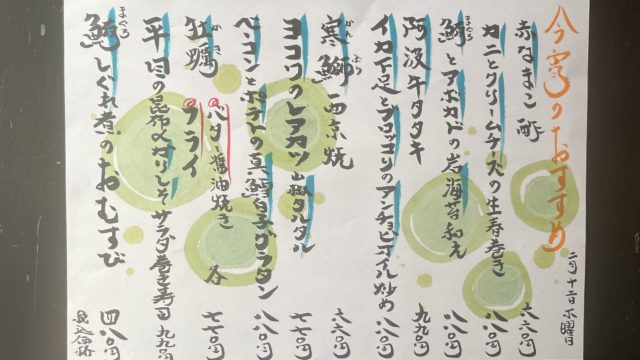 今宵のおすすめ
二月十二日 木曜日
赤なまこ酢 六六〇円
カニとクリームチーズの生春巻き 八八〇円
鮪まぐろとアボカドの岩海苔和え 八八〇円
阿波牛タタキ 九九〇円
イカ下足とブロッコリのアンチョビ炒め 八八〇円
寒鰤かんぶり西京焼 六六〇円
ヨコワのレアカツ 山葵タルタル 七七〇円
ベーコンとポテトの真鱈白子グラタン 八八〇円
牡蠣かき
@バター醤油焼き 各 七七〇円
@フライ
平目の昆布〆しそサラダ巻き寿司 九九〇円
鮪まぐろしぐれ煮のおむすび 四八〇円
税込価格